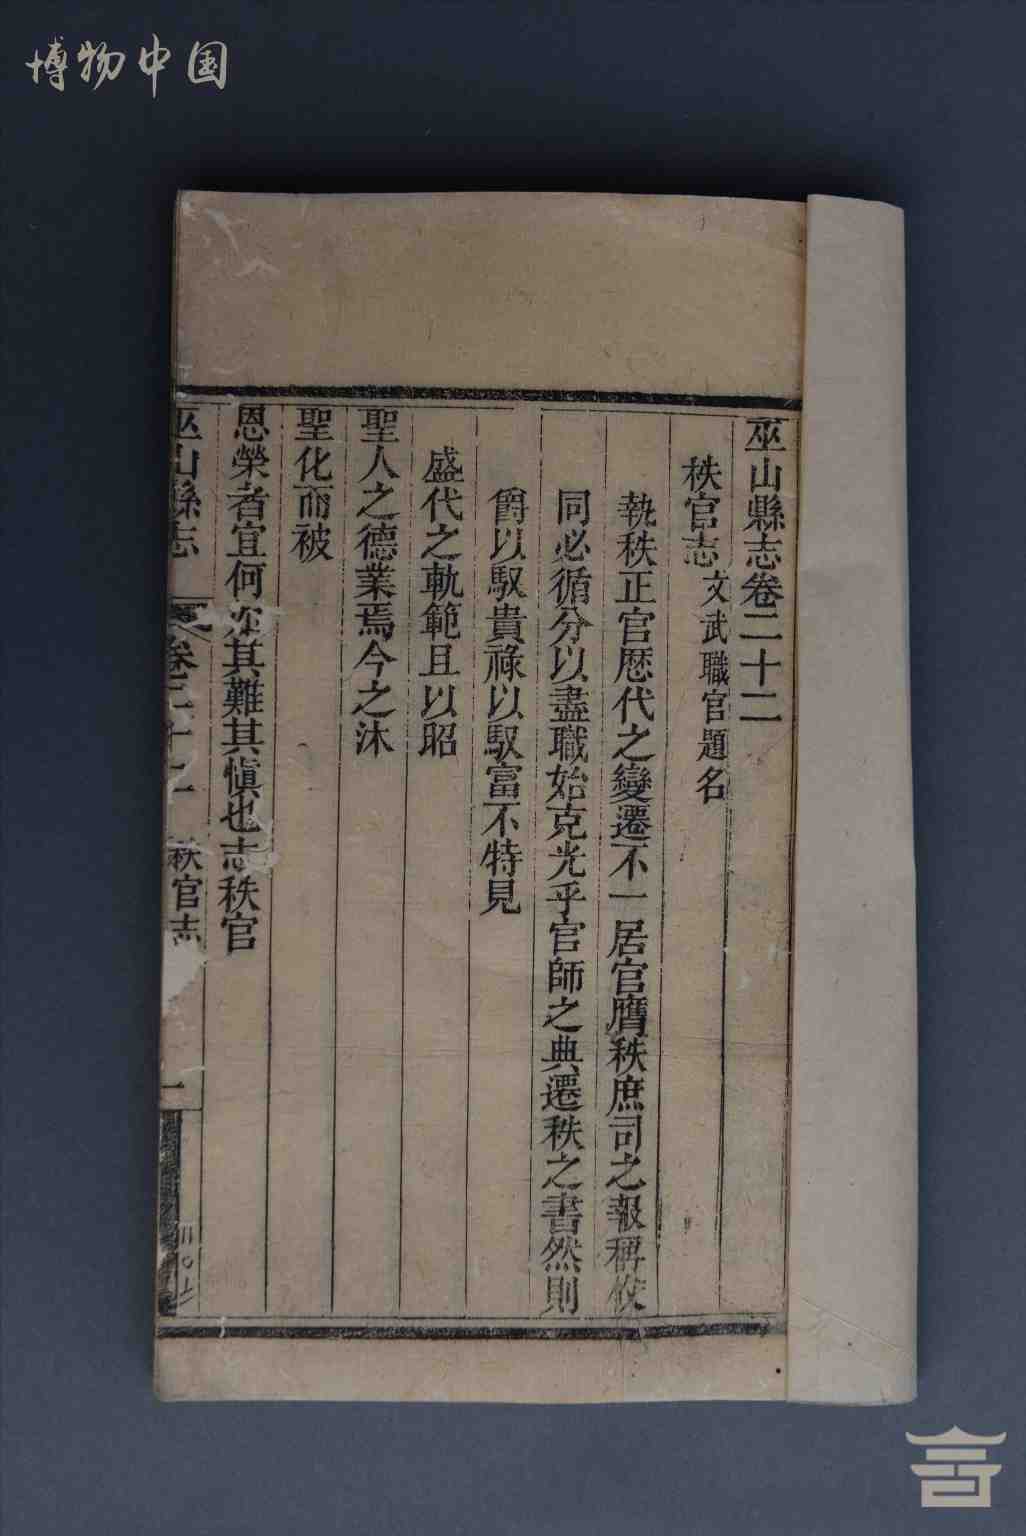 博物中国
巫山縣志卷二十二
秩官志 文武職官題名
執秩正官歷代之變遷不一居官膺秩庶司之報稱攸
同必循分以盡職始克光乎官師之典遷秩之書然則
爵以馭貴祿以馭富不特見
盛代之軌範且以昭
聖人之德業焉今之沐
聖化而被
恩榮者宜何如其難其愼也志秩官
巫山縣志 卷二十二 秩官志 一